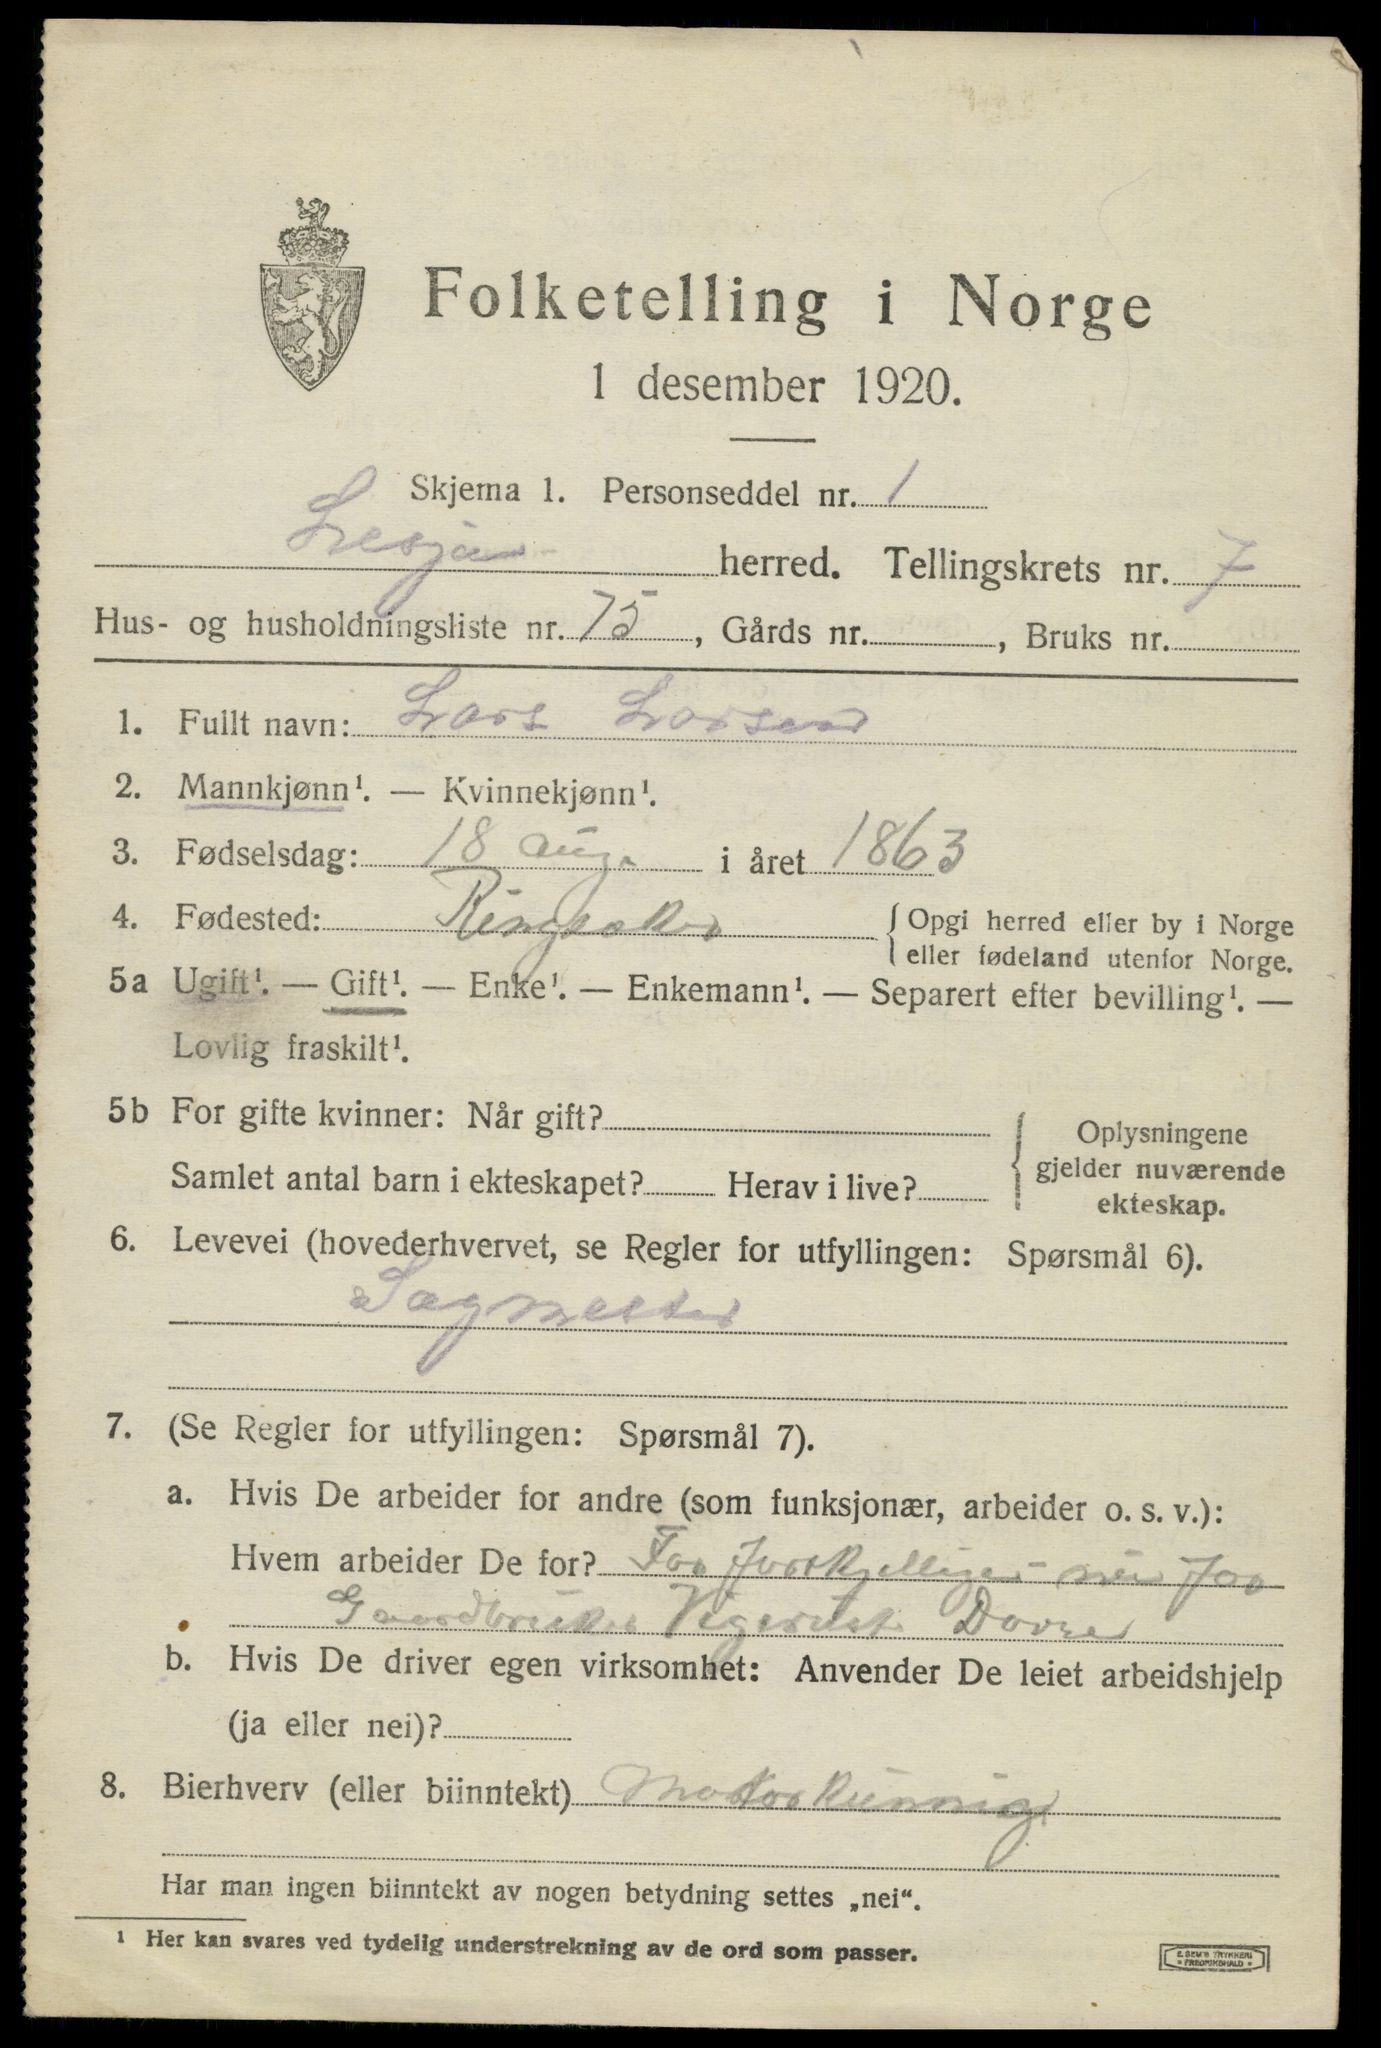 Folketelling i Norge
1 desember 1920.
Skjema 1. Personseddel nr. 1
Lesja herred. Tellingskrets nr. 7
Hus- og husholdningsliste nr. 75, Gårds nr. , Bruks nr.
1. Fullt navn: Lars Larsen
2. Mannkjønn¹. — Kvinnekjønn¹.
3. Fødselsdag: 18 aug. i året 1863
4. Fødested: Ringsaker { Opgi herred eller by i Norge
eller fødeland utenfor Norge.
5a Ugift¹. — Gift¹. — Enke¹. — Enkemann¹. — Separert efter bevilling¹. —
Lovlig fraskilt¹.
5b For gifte kvinner: Når gift?
Samlet antal barn i ekteskapet? Herav i live?
{ Oplysningene
gjelder nuværende
ekteskap.
6. Levevei (hovederhvervet, se Regler for utfyllingen: Spørsmål 6).
Sagmester
7. (Se Regler for utfyllingen: Spørsmål 7).
a. Hvis De arbeider for andre (som funksjonær, arbeider o. s. v.):
Hvem arbeider De for? For forskjellige - nu for
Gaardbruker Vigerust Dovre
b. Hvis De driver egen virksomhet: Anvender De leiet arbeidshjelp
(ja eller nei)?
8. Bierhverv (eller biinntekt) Motorkunnig
Har man ingen biinntekt av nogen betydning settes „nei“.
¹ Her kan svares ved tydelig understrekning av de ord som passer.
E. SEM'S TRYKKERI
* FREDRIKSHALD *